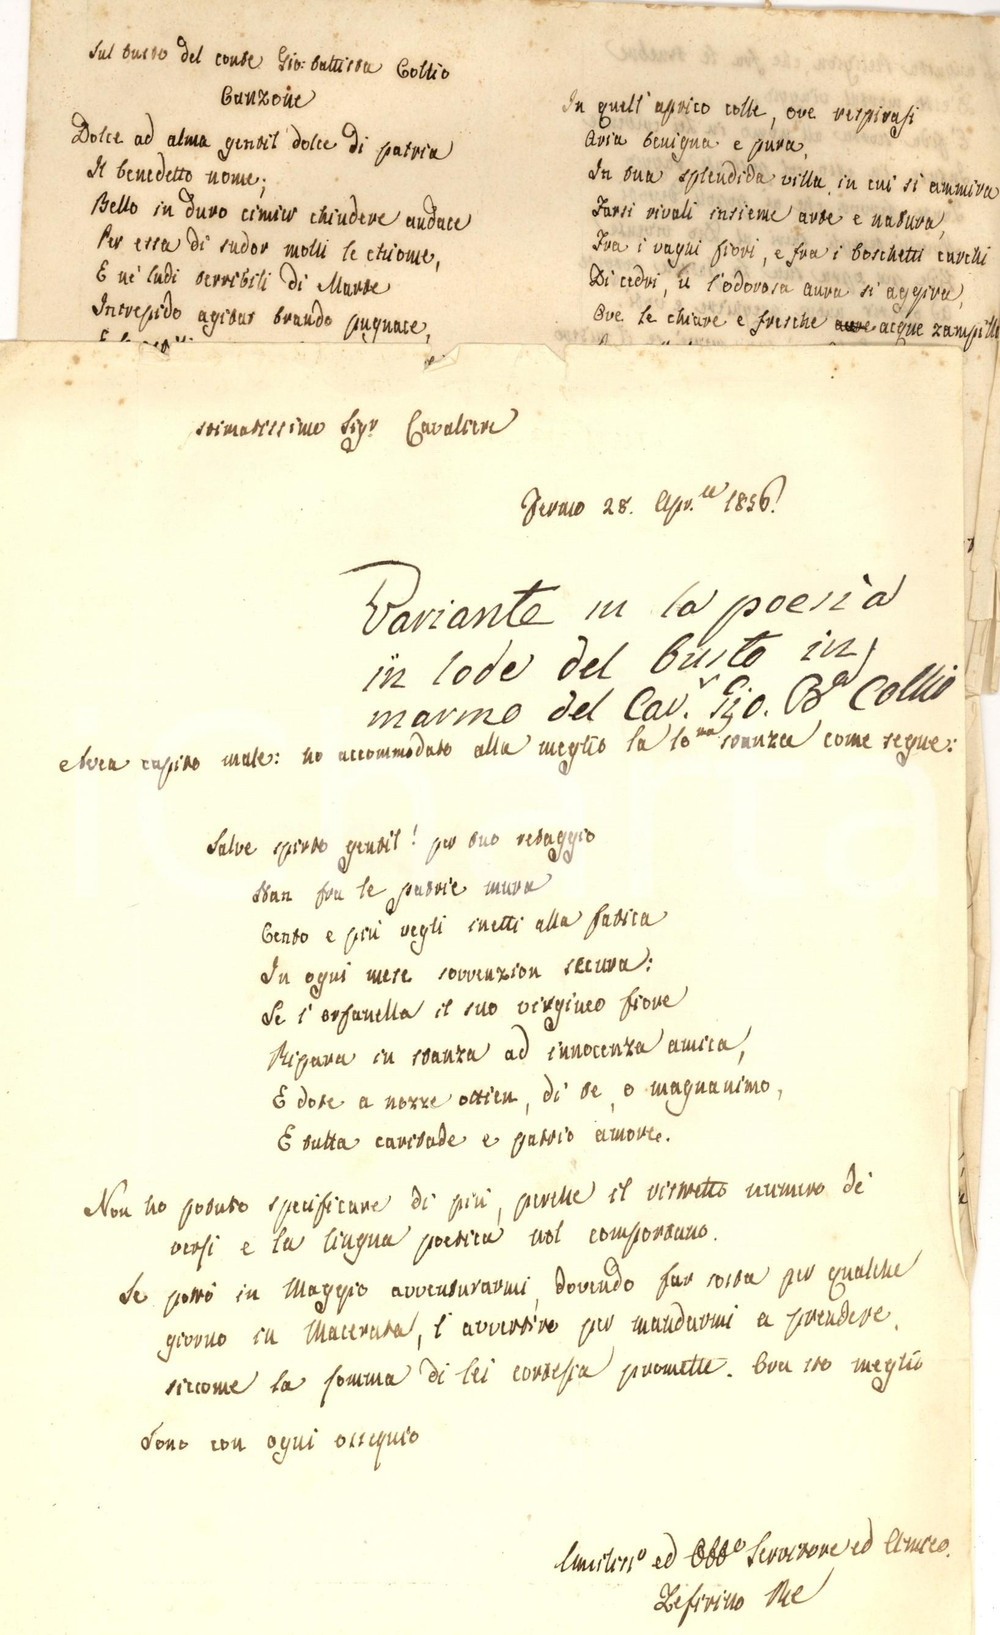 Sul busto del conte Gio: Battista Collio
Canzone
Dolce ad alma gentil dolce di patria
Il benedetto nome;
Bello in duro cimier chiudere audace
Per essa di sudor molli le chiome,
E ne' ludi terribili di Marte
Intrepido agitar brando pugnace,
In quell' aprico colle, ove respirasi
Aria benigna e pura,
In tua splendida villa in cui si ammira
Farsi rivali insieme arte e natura,
Fra i vaghi fiori, e fra i boschetti carchi
Di cedri, u' l'odorosa aura si aggira,
Ove le chiare e fresche aure acque zampill
Stimatissimo Sigr Cavaliere
Fermo 28. Apr.le 1856.
Variante in la poesia
in lode del Busto in
marmo del Cav.r Gio. Ba Collio
Avea capito male: ho accommodato alla meglio la 10ma stanza come segue:
Salve spirto gentil! per tuo retaggio
Stan fra le patrie mura
Cento e più vegli inetti alla fatica
In ogni mese sovvenzion secura:
Se l'orfanella il suo virgineo fiore
Ripara in stanza ad innocenza amica,
E dote a nozze ottien, di te, o magnanimo,
E tutta caritade e patrio amore.
Non ho potuto specificare di più, perche il ristretto numero de'
versi e la lingua poetica nol comportano.
Se potrò in Maggio avventurarmi, dovendo far sosta per qualche
giorno in Macerata, l'avvertirò per mandarmi a prendere,
siccome la somma di lei cortesia promette. Ora sto meglio
Sono con ogni ossequio
ed Obbo Servitore ed Amico.
Zefirino Re